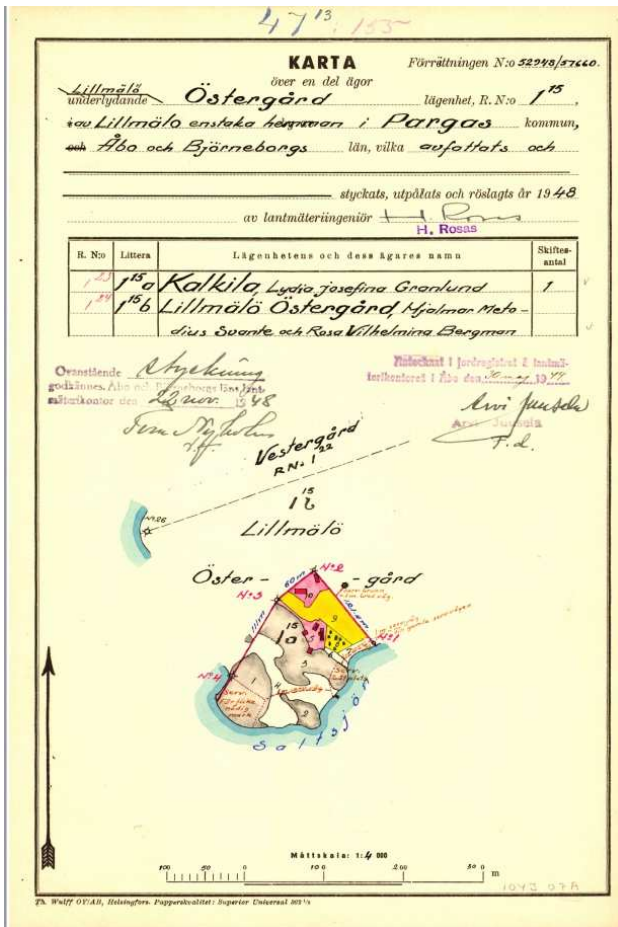 47 13 : 155
KARTA
Förrättningen N:o 52948/57660.
över en del ägor
Lillmälö
underlydande Östergård lägenhet, R. N:o 1 15,
av Lillmälö enstaka hemman i Pargas kommun,
och Åbo och Björneborgs län, vilka avfattats och
styckats, utpålats och röslagts år 1948
av lantmäteriingeniör H. Rosas
H. Rosas
R. N:o Littera Lägenhetens och dess ägares namn Skiftes-antal
1 23 1 15 a Kalkila, Lydia Josefina Granlund 1
1 24 1 15 b Lillmälö Östergård, Hjalmar Meto-
dius Svante och Rosa Vilhelmina Bergman
Ovanstående styckning
godkännes. Åbo och Björneborgs läns lant-
mäterikontor den 22 nov. 1948
Antecknat i jordregistret å lantmä-
terikontoret i Åbo den 30 maj 1949
Arvi Junsela
Arvi Junsela
T.d.
Vestergård
RN:o 1 22
15
1 b
Nr 26
Lillmälö
Öster - gård
No 2
60 m
No 3
111 m
No 1
15
1a
9
5
3
No 4
1
4
2
Saltsjön
Måttskala: 1:4 000
100 50 0 100 200 300 m
1043 07A
Th. Wulff OY/AB, Helsingfors. Papperskvalitet: Superior Universal